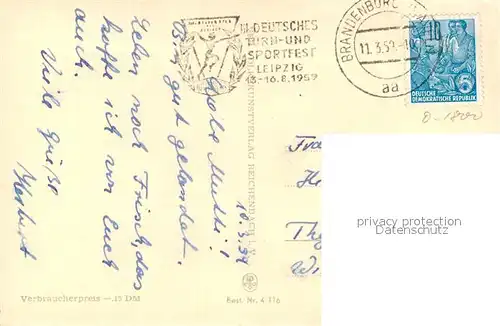 III. DEUTSCHES
TURN-UND
SPORTFEST
LEIPZIG
13.-16.8.1959
BRANDENBURG
11.3.59.-18
aa
10
6
DEUTSCHE
DEMOKRATISCHE REPUBLIK
0-18200
10.3.59
Liebe Mutti!
Bin gut gelandet.
Leben noch Frisch, das
hoffe ich von Euch
auch.
Viele Grüße
Herbert
Frau
Thg
KUNSTVERLAG REICHENBACH I. V.
privacy protection
Verbraucherpreis —.15 DM
Best. Nr. 4 116